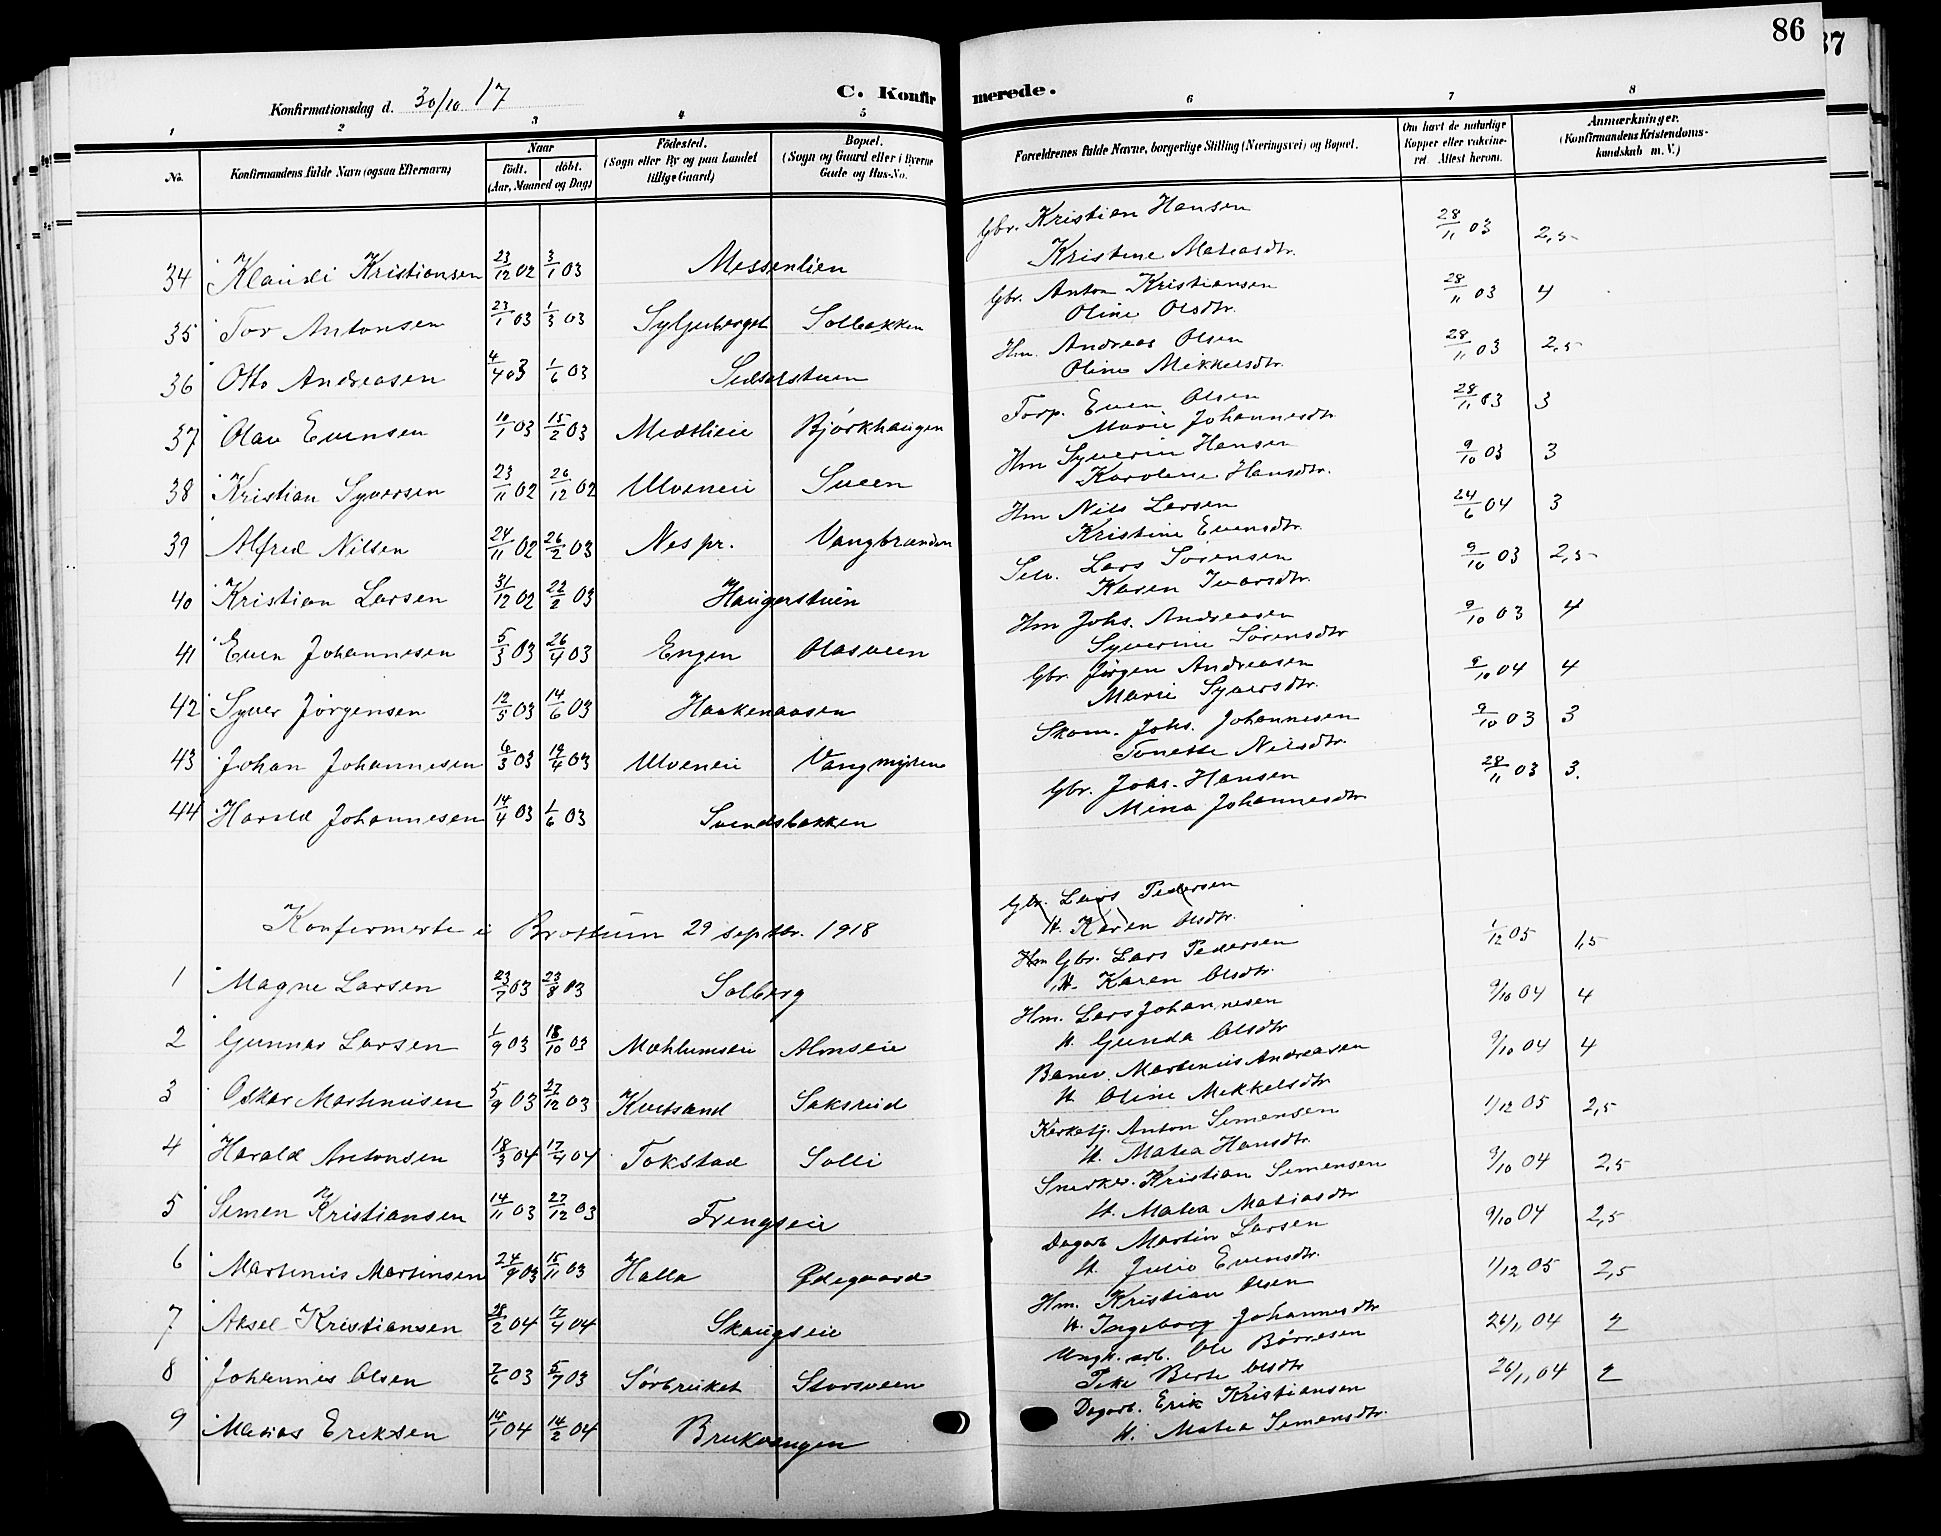 86
37
Konfirmationsdag d. 30/10 17
C. Konfirmerede.
1 2 3 4 5 6 7 8
No.
Konfirmandens fulde Navn (ogsaa Efternavn)
Naar
født. døbt.
(Aar, Maaned og Dag)
Fødested.
(Sogn eller By og paa Landet
tillige Gaard)
Bopæl.
(Sogn og Gaard eller i Byerne
Gade og Hus-No.
Forældrenes fulde Navne, borgerlige Stilling (Næringsvei) og Bopæl.
Om havt de naturlige
Kopper eller vaksine-
ret. Attest herom.
Anmærkninger.
(Konfirmandens Kristendoms-
kundskab m. V.)
34 Klaudi Kristiansen 23/12 02 3/1 03 Messenlien Gbr. Kristian Hansen 28/11 03 2,5
Kristine Matiasdtr.
35 Tor Antonsen 23/1 03 1/3 03 Syljuberget Solbakken Gbr. Anton Kristiansen 28/11 03 4
Oline Olsdtr.
36 Otto Andreasen 4/4 03 1/6 03 Hm. Andreas Olsen 28/11 03 2,5
Oline Mikkelsdtr.
37 Olav Evensen 10/1 03 15/2 03 Bjørkhaugen Torp. Even Olsen 28/11 03 3
Marie Johannesdtr
38 Kristian Syversen 23/11 02 26/12 02 Ulveneie Sveen Hm Syverin Hansen 9/10 03 3
Karoline Hansdtr.
39 Alfred Nilsen 24/11 02 26/2 03 Nes pr. Vangbrænden Hm Nils Larsen 24/6 04 3
Kristine Evensdtr.
40 Kristian Larsen 31/12 02 22/2 03 Haugerstuen Selv. Lars Sørensen 9/10 03 2,5
Karen Ivarsdtr.
41 Even Johannesen 5/3 03 26/4 03 Engen Olasveen Hm Johs. Andreasen 9/10 03 4
Syverine Sørensdtr
42 Syver Jørgensen 12/5 03 14/6 03 Haakenaasen Gbr. Jørgen Andreasen 9/10 04 4
Marie Syversdtr.
43 Johan Johannesen 6/3 03 19/4 03 Ulveneie Vangmyren Skom. Johs. Johannesen 9/10 03 3
Tonette Nilsdtr.
44 Harald Johannesen 14/4 03 1/6 03 Svendsbakken Gbr. Johs. Hansen 28/11 03 3.
Mina Johannesdtr.
Gbr. Lars Pedersen
H. Karen Olsdtr.
Konfirmerte i Brøttum 29 septbr. 1918
1 Magne Larsen 23/7 03 23/8 03 Solberg Hm Gbr. Lars Pedersen 1/12 05 1,5
H. Karen Olsdtr.
2 Gunnar Larsen 1/9 03 18/10 03 Mæhlumseie Almseie Hm. Lars Johannesen 9/10 04 4
H. Gunda Olsdtr
3 Oskar Martinusen 5/9 03 27/12 03 Kvitsand Saksrud Banev. Martinius Andreasen 9/10 04 4
H. Oline Mikkelsdtr
4 Harald Antonsen 18/3 04 17/4 04 Tokstad Solli Kirketj. Anton Simensen 1/12 05 2,5
H. Matea Hansdtr.
5 Simen Kristiansen 14/11 03 27/12 03 Frengseie Snedker. Kristian Simensen 9/10 04 2,5
H. Matea Matiasdtr
6 Martinius Martinsen 24/9 03 15/11 03 Halla Ødegaard Dagarb Martin Larsen 9/10 04 2,5
H. Julie Evensdtr.
7 Aksel Kristiansen 28/2 04 17/4 04 Skaugseie Hm. Kristian Olsen 1/12 05 2,5
H. Ingeborg Johannesdtr
8 Johannes Olsen 7/6 03 5/7 03 Sørbruket Storsveen Ungk. arb. Ole Børresen 26/11 04 2
Pike Berte Olsdtr
9 Matias Eriksen 14/1 04 14/2 04 Brukvangen Dagarb. Erik Kristiansen 26/11 04 2
H. Matea Simensdtr.